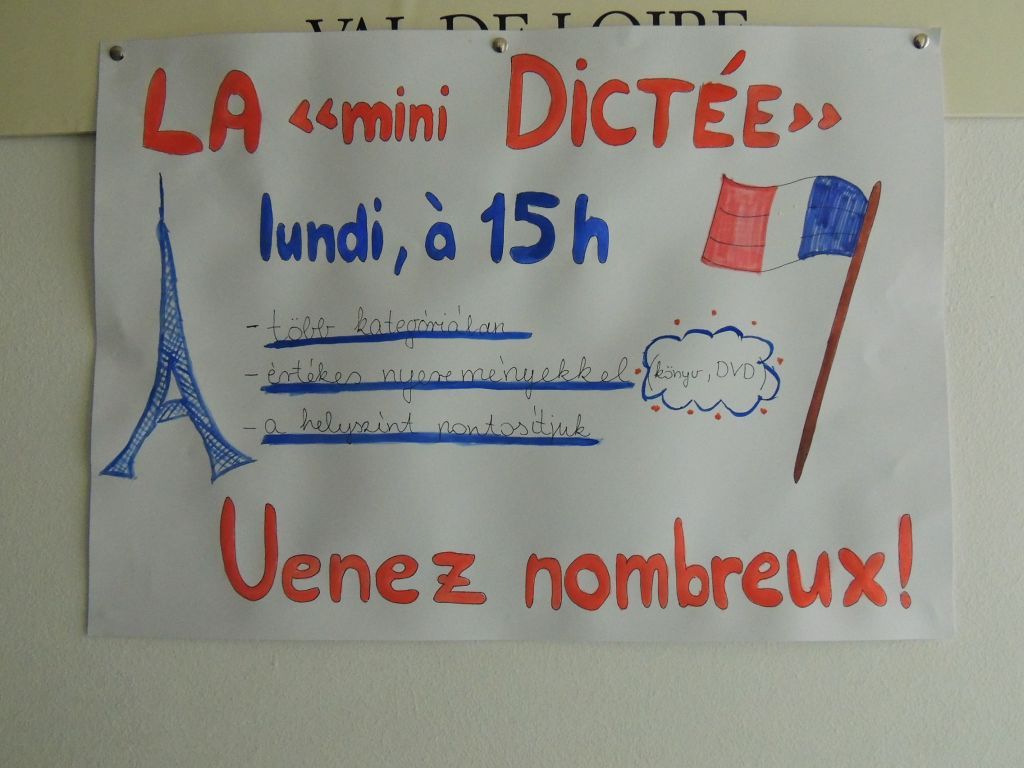 VAL DE LOIRE
LA «mini DiCTÉE»
lundi, à 15h
- több kategóriában
- értékes nyereményekkel (könyv, DVD)
- a helyszínt pontosítjuk
Venez nombreux!